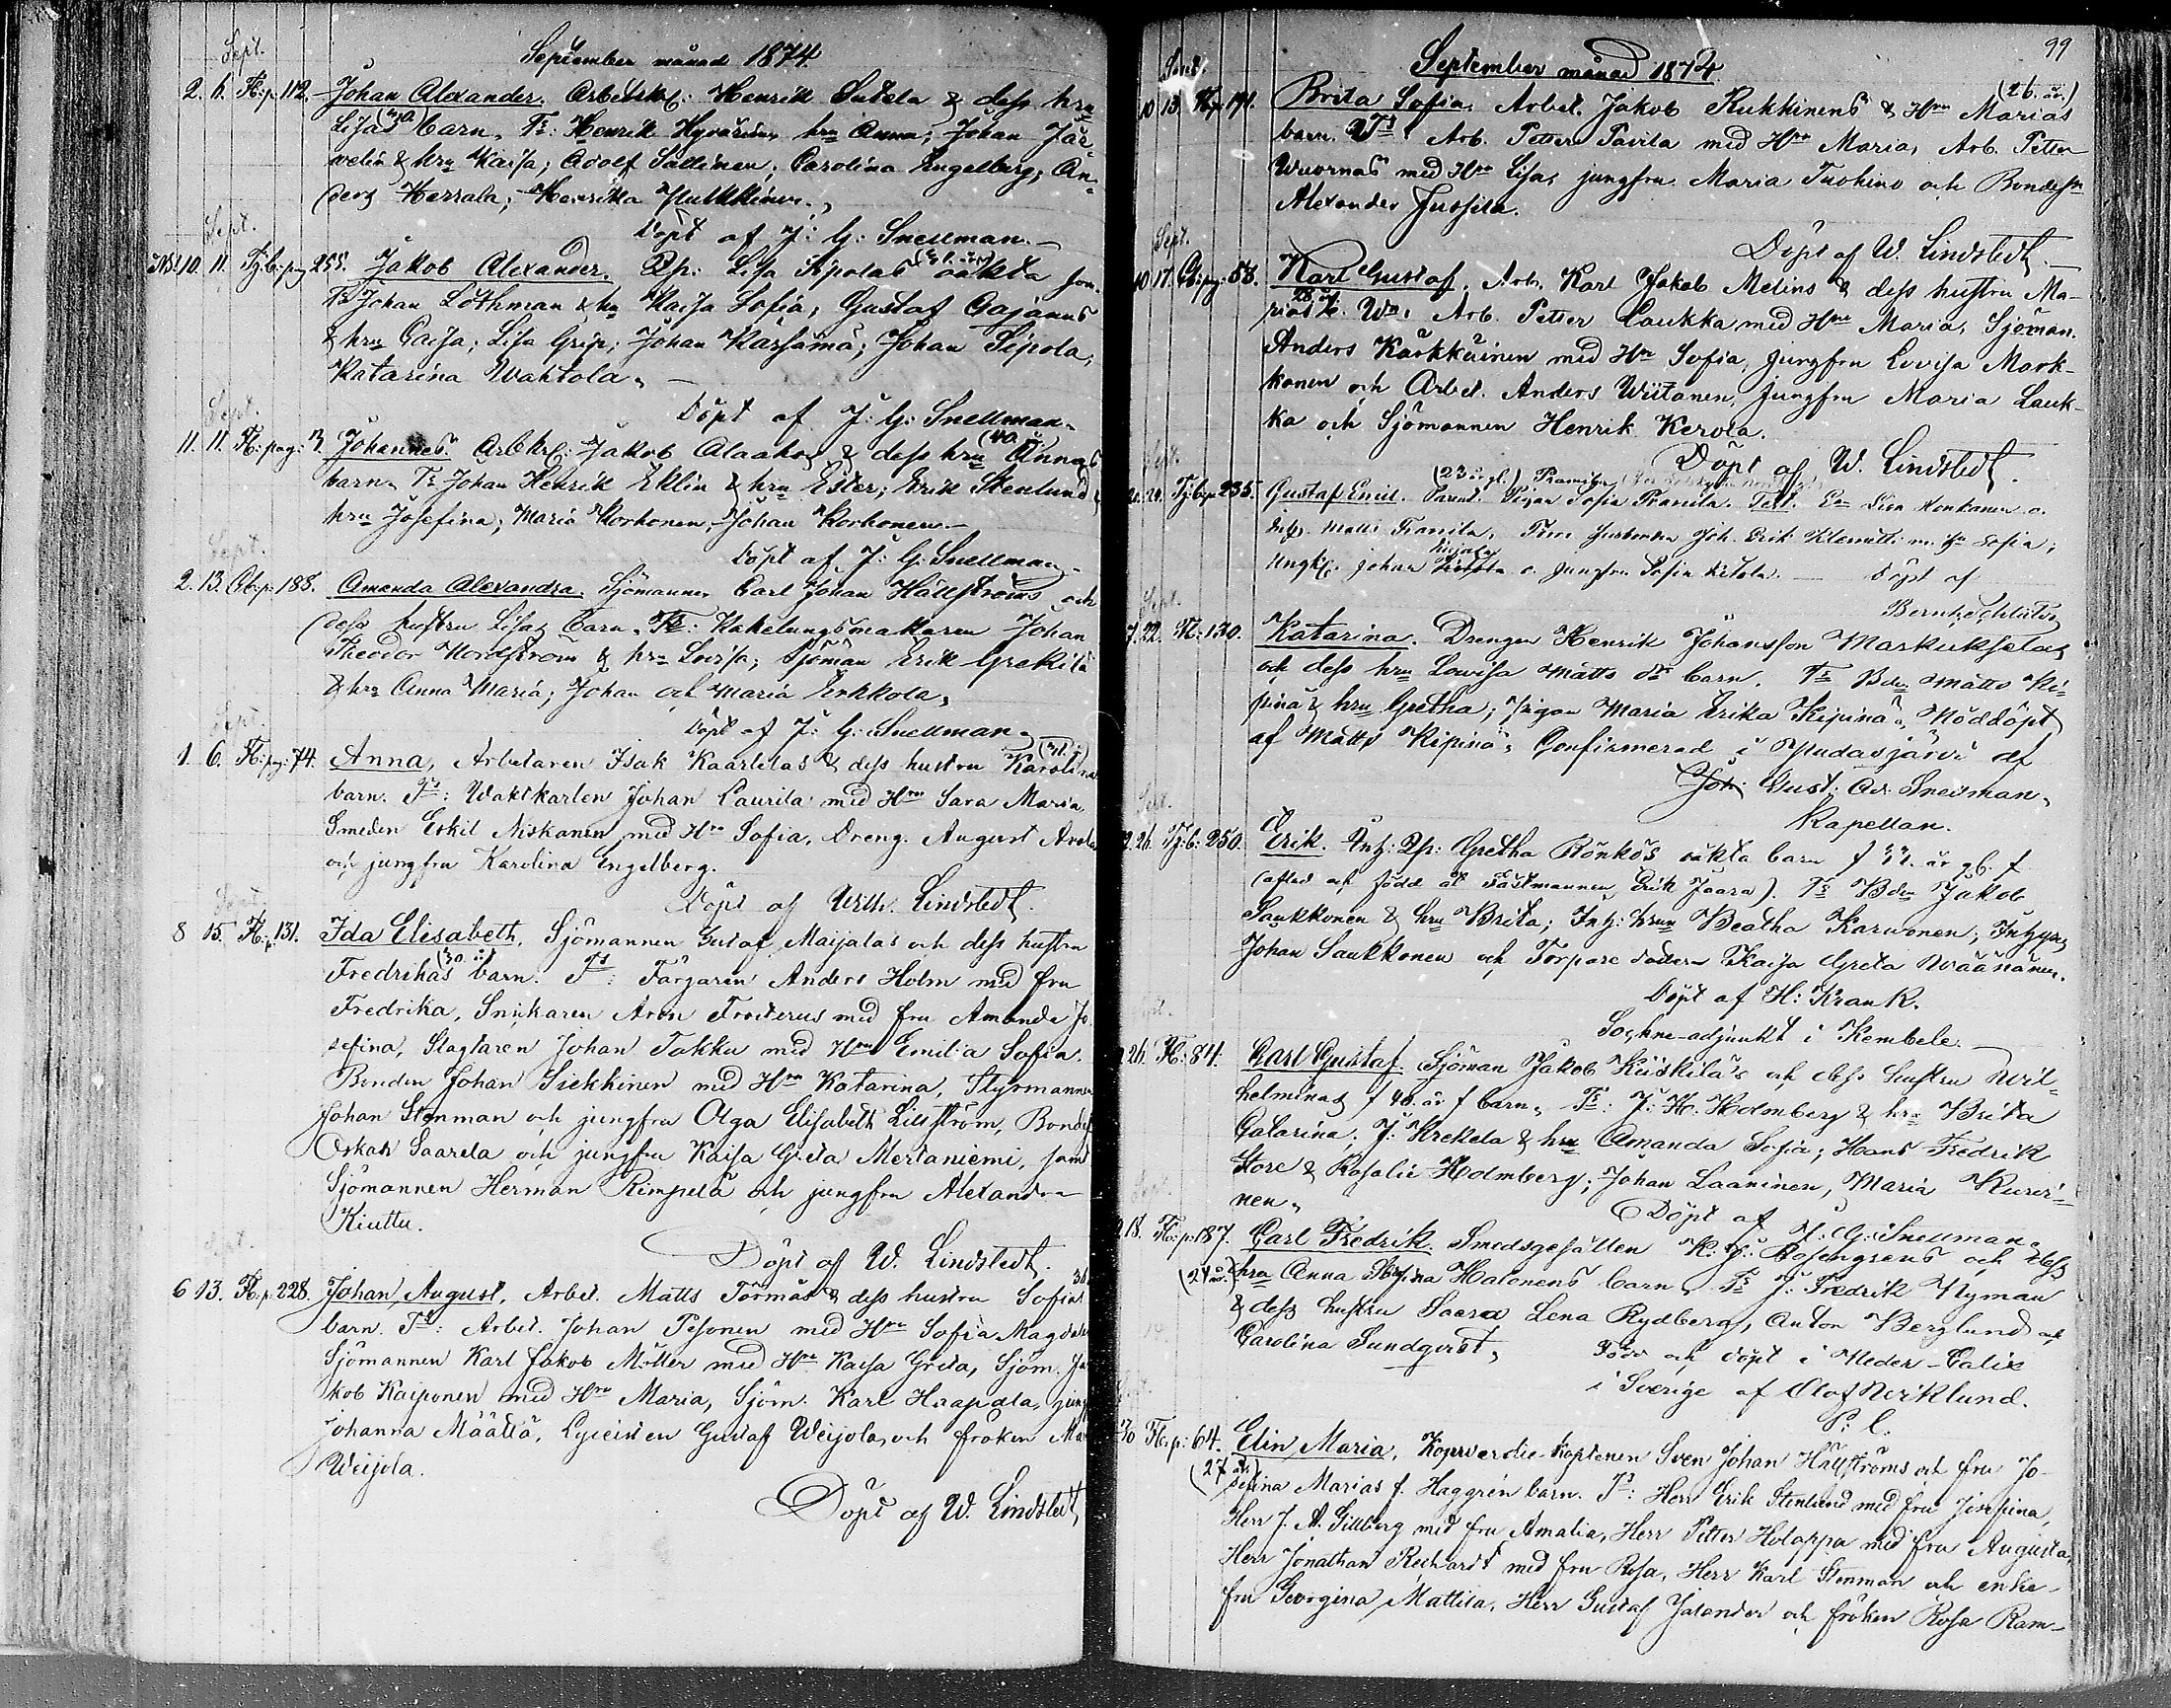 Sept.
September månad 1874.
2. 6. Fl: p. 112. Johan Alexander. Arbetskl: Henrik Sutela & dess hru
Lisas barn. Ts: Henrik Hyvärinen, hru Anna; Johan Jär-
velin & hru Kaisa; Adolf Sallinen; Carolina Engelberg; An-
ders Herrala; Henrika Pulkkinen.
Döpt af J: G: Snellman.
Sept.
10. 11. Tj.b: pag 255. Jakob Alexander. Qp: Lisa Sipolas oäkta son.
Ts Johan Löthman & hru Kaisa Sofia; Gustaf Gajanus
& hru Caisa; Lisa Grip; Johan Karsama; Johan Sipola;
Katarina Wahtola.
Döpt af J: G: Snellman.
Sept.
11. 11. Fl: pag: 3. Johannes. Arbkrl: Jakob Alaahos & dess hru Annas
barn. Ts Johan Henrik Eklin & hru Ester; Erik Stenlund &
hru Josefina; Maria Korhonen, Johan Korhonen.
Sept.
Döpt af J: G: Snellman.
2. 13. p: 188. Amanda Alexandra. Sjömannen Carl Johan Hällströms och
dess hustru Lisas barn. Ts: Kakelungsmakaren Johan
Theodor Nordström & hru Lovisa; Sjöman Erik Grekilä
& hru Anna Maria; Johan och Maria Erkkola.
Sept.
Döpt af J: G: Snellman.
1 6. Fl: pag: 74. Anna, Arbetaren Isak Kaarlelas & dess hustru Karolinas
barn. Ts: Waktkarlen Johan Laurila med Hru Sara Maria,
Smeden Eskil Niskanen med Hru Sofia, Dreng. August
och jungfru Karolina Engelberg.
Sept.
Döpt af Wilh. Lindstedt.
8 15. Fl: p. 131. Ida Elisabeth. Sjömannen Gustaf Maijalas och dess hustru
(30 år)
Fredrikas barn. Ts: Färgaren Anders Holm med fru
Fredrika, Snickaren Aron Frosterus med fru Amanda Jo-
sefina, Slagtaren Johan Tokku med Hru Emilia Sofia.
Bonden Johan Siekkinen med Hru Katarina, Styrmannen
Johan Stenman och jungfru Olga Elisabeth Lillström, Bondes.
Oskar Saarela och jungfru Kaisa Greta Merlaniemi, samt
Sjömannen Herman Rimpelä och jungfru Alexandra
Kiuttu.
Sept.
Döpt af W. Lindstedt.
6 13. Fl: p. 228. Johan August, Arbet. Matts Törmäs & dess hustru Sofias
barn. Ts: Arbet. Johan Pesonen med Hru Sofia Magdal
Sjömannen Karl Jakob Möller med Hru Kaisa Greta, Sjöm. Ja
kob Kaiponen med Hru Maria, Sjöm. Karl Haapala, jungf
Johanna Määttä, Lyceisten Gustaf Weijola, och fröken Ma
Weijola.
Döpt af W. Lindstedt,
99
Sept.
September månad 1874.
(26. år)
10 13. Fl: p. 191. Brita Sofia, Arbet. Jakob Rukkinens & Hru Marias
barn. Ts: Arb. Petter Pavila med Hru Maria, Arb. Petter
Wuornas med Hru Lisa, jungfru Maria Tuohino och Bondesn
Alexander Jussila.
Sept.
Döpt af W. Lindstedt.
10 17. pag: 58. Karl Gustaf. Arb. Karl Jakob Melins & dess hustru Ma-
28 år
rias b. Wn: Arb. Petter Laukka med Hru Maria, Sjöman.
Anders Kärkkäinen med Hru Sofia, jungfru Lovisa Mark-
kanen och Arbet. Anders Wiitanen, jungfru Maria Lauk-
ka och Sjömannen Henrik Kerola.
Sept.
Döpt af W. Lindstedt.
20. Tj.b: p: 235. Gustaf Emil. Parent. Pigan Sofia Pramila. Test. En Lisa Honkanen o.
Matts Framila, Johan Erik Klemetti m. hr Sofia;
Ungk. Johan o. jungfru Sofia Ketola. Döpt af
Sept.
Bernh. Schlüter
7. 22. Fl: 130. Katarina. Drengen Henrik Johansson Markukselas
och dess hru Lowisa Matts dr barn. Ts Bdn Matts Ri-
pinä & hru Gretha; pigan Maria Erika Ripinä. Nöddöpt
af Matts Ripinä. Confirmerad i Pudasjärvi af
Joh: Gust: Ad: Snellman,
Sept.
Kapellan.
22. 26. Tj.b: 250. Erik. Inh: Qp: Gretha Rönkö's oäkta barn f 33. år gb. f
(aflad och född åt fästmannen Erik Jaara). Ts Bdn Jakob
Saukkonen & hru Brita; Inh: hrun Beatha Karwonen; Inhyses
Johan Saukkonen och Torpare dottern Kaisa Greta Wäänänen.
Döpt af H: Krank.
Sockne-adjunkt i Kembele.
26. Fl: 84. Carl Gustaf. Sjöman Jakob Kiiskilä's och dess hustru Wil-
helminas f 40. år f barn. Ts: J: H. Holmberg & hru Brita
Catarina. J: Krekela & hru Amanda Sofia; Hans Fredrik
Store & Rosalie Holmberg; Johan Laaninen, Maria Kuuri-
nen.
Döpt af J: G: Snellman.
18. Fl: p: 187. Carl Fredrik. Smedsgesällen K: J: Rosengrens och dess
(24 år) hru Anna Stefina Halonens barn. Ts J: Fredrik Nyman
& dess hustru Saara Lena Rydberg, Anton Berglund och
Carolina Sundqvist, Född och döpt i Neder-Calix
i Sverige af Olof Wiklund.
P. L.
Fl: p: 64. Elin Maria, Kopverdie-kaptenen Sven Johan Hällströms och fru Jo-
(27 år)
sefina Marias f. Haggrén barn. Ts: Herr Erik Stenlund med fru Josefina,
Herr J. A. Gillberg med fru Amalia, Herr Petter Holappa med fru Augusta,
Herr Jonathan Rechardt med fru Rosa, Herr Karl Stenman och enke-
fru Georgina Mattila, Herr Gustaf Jalander och fröken Rosa Ram-